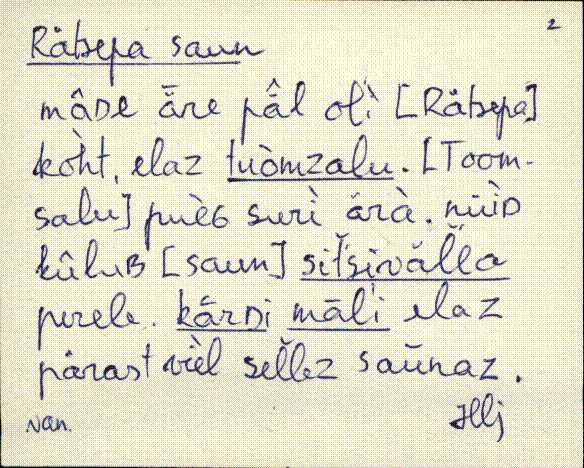 2
Rätsepa saun
mâᴅe ǟre pǟl oľ̀i [Rätsepa]
kòht, elaz tuòmzalu. [Toom-
salu] puèɢ surì ärà. nüìᴅ
kûluʙ [saun] sitsivälla
perele. kǟrᴅi māľi elaz
pärast vièl sellez saùnaz.
van. Hlj